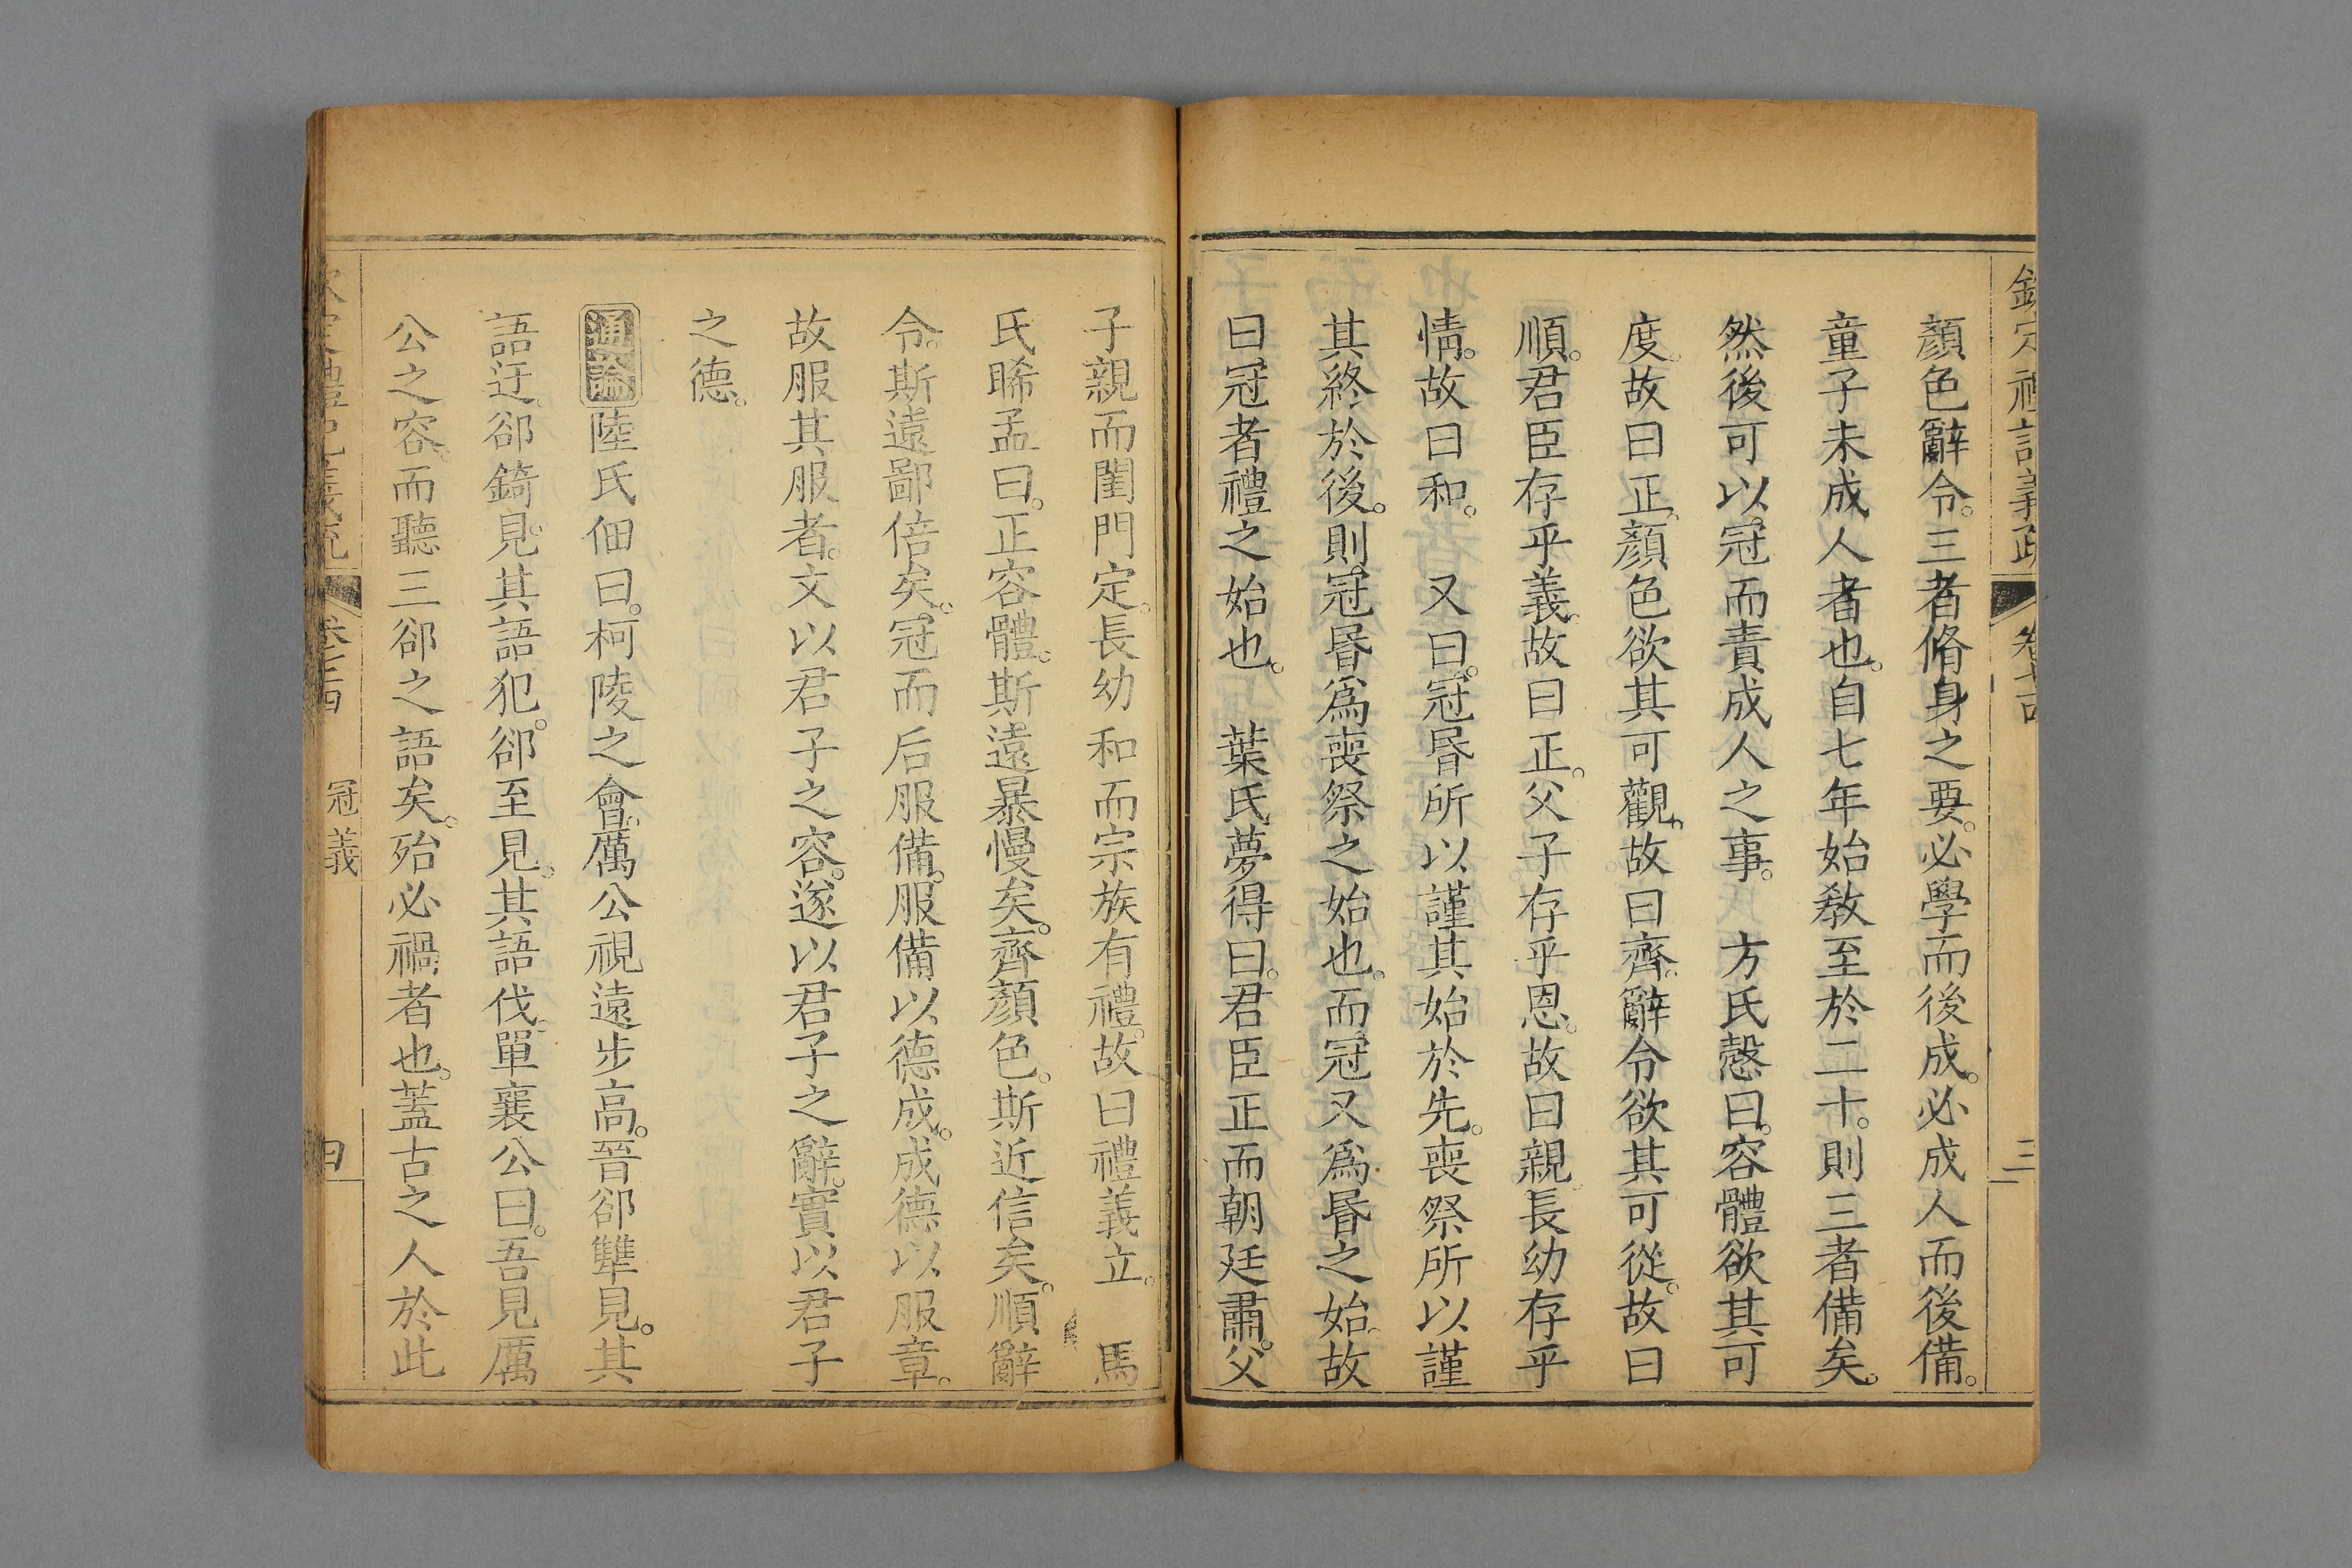 欽定禮記義疏 卷七十四 三
顏色辭令。三者脩身之要。必學而後成。必成人而後備。
童子未成人者也。自七年始敎至於二十。則三者備矣。
然後可以冠而責成人之事。 方氏慤曰。容體欲其可
度。故曰正。顏色欲其可觀。故曰齊。辭令欲其可從。故曰
順。君臣存乎義。故曰正。父子存乎恩。故曰親。長幼存乎
情。故曰和。 又曰。冠昬所以謹其始於先。喪祭所以謹
其終於後。則冠昬爲喪祭之始也。而冠又爲昬之始。故
曰冠者禮之始也。 葉氏夢得曰。君臣正而朝廷肅。父
子親而閨門定。長幼和而宗族有禮。故曰禮義立。 馬
氏晞孟曰。正容體。斯遠暴慢矣。齊顏色。斯近信矣。順辭
令。斯遠鄙倍矣。冠而后服備。服備以德成。成德以服章。
故服其服者。文以君子之容。遂以君子之辭。實以君子
之德。
通論陸氏佃曰。柯陵之會。厲公視遠步高。晉郤犨見。其
語迂。郤錡見。其語犯。郤至見。其語伐。單襄公曰。吾見厲
公之容。而聽三郤之語矣。殆必禍者也。蓋古之人於此
禮記義疏 冠義